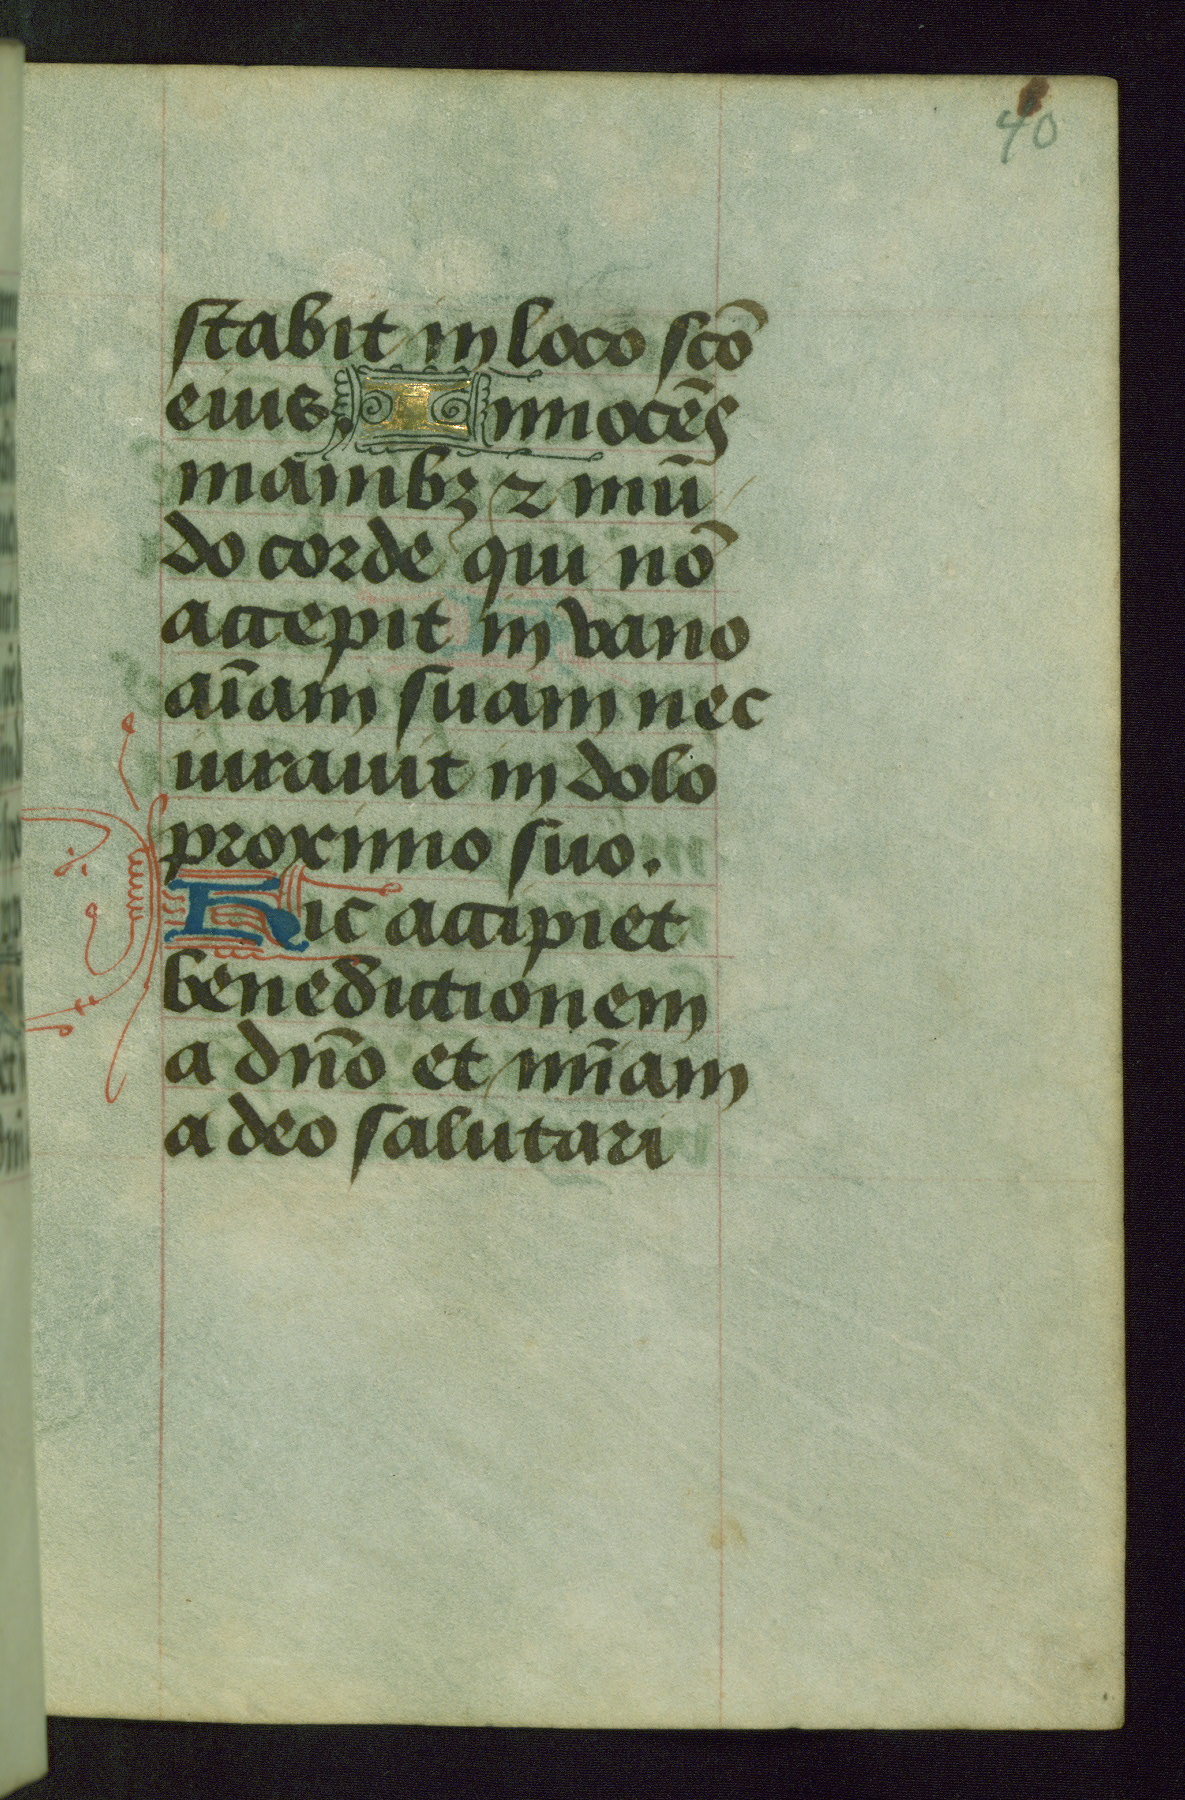 40
stabit in loco scō
eius. Innocēs
manibꝫ ⁊ mū
do corde qui nō
accepit in vano
aīam suam nec
iurauit in dolo
proximo suo.
Hic accipiet
benedictionem
a dn̄o et mīam
a deo salutari